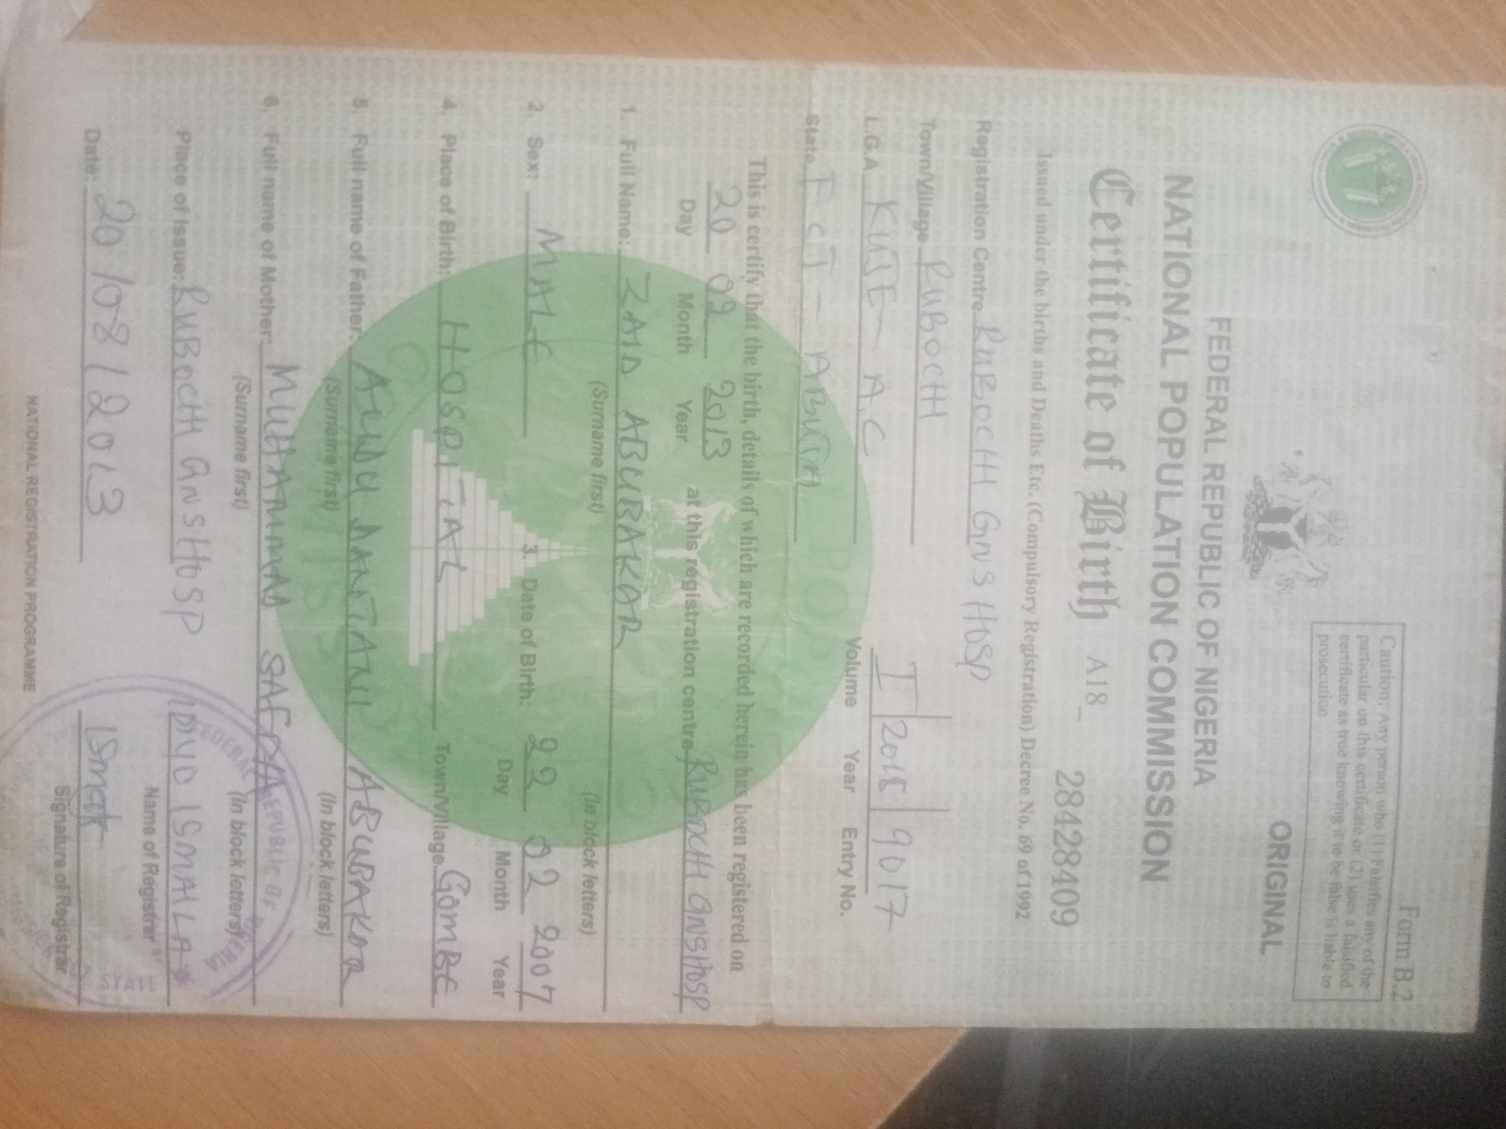 Form B.2
Caution: Any person who (1) Falsifies any of the
particular on this certificate or (2) uses a falsified
certificate as true knowing it to be false is liable to
prosecution
ORIGINAL
FEDERAL REPUBLIC OF NIGERIA
NATIONAL POPULATION COMMISSION
Certificate of Birth A18 28428409
Issued under the births and Deaths Etc. (Compulsory Registration) Decree No. 69 of 1992
Registration Centre RUBOCHI GNS HOSP
Town/Village RUBOCHI
L.G.A KUJE A.C I 2015 9017
Volume Year Entry No.
State FCT - ABUJA
This is certify that the birth, details of which are recorded herein has been registered on
20 02 2013 at this registration centre RUBOCHI GNSHOSP
Day Month Year
1. Full Name: ZAID ABUBAKAR
(Surname first) (In block letters)
2. Sex: MALE 3. Date of Birth: 22 02 2007
Day Month Year
4. Place of Birth: HOSPITAL Town/Village GOMBE
5. Full name of Father: ABUBAKAR
(Surname first) (In block letters)
6. Full name of Mother: MUHAMMAD
(Surname first) (In block letters)
Place of Issue: RUBOCHI GNSHOSP ISMAILA
Name of Registrar
Date 20/08/2013
Signature of Registrar
NATIONAL REGISTRATION PROGRAMME
FEDERAL REPUBLIC OF NIGERIA
STATE